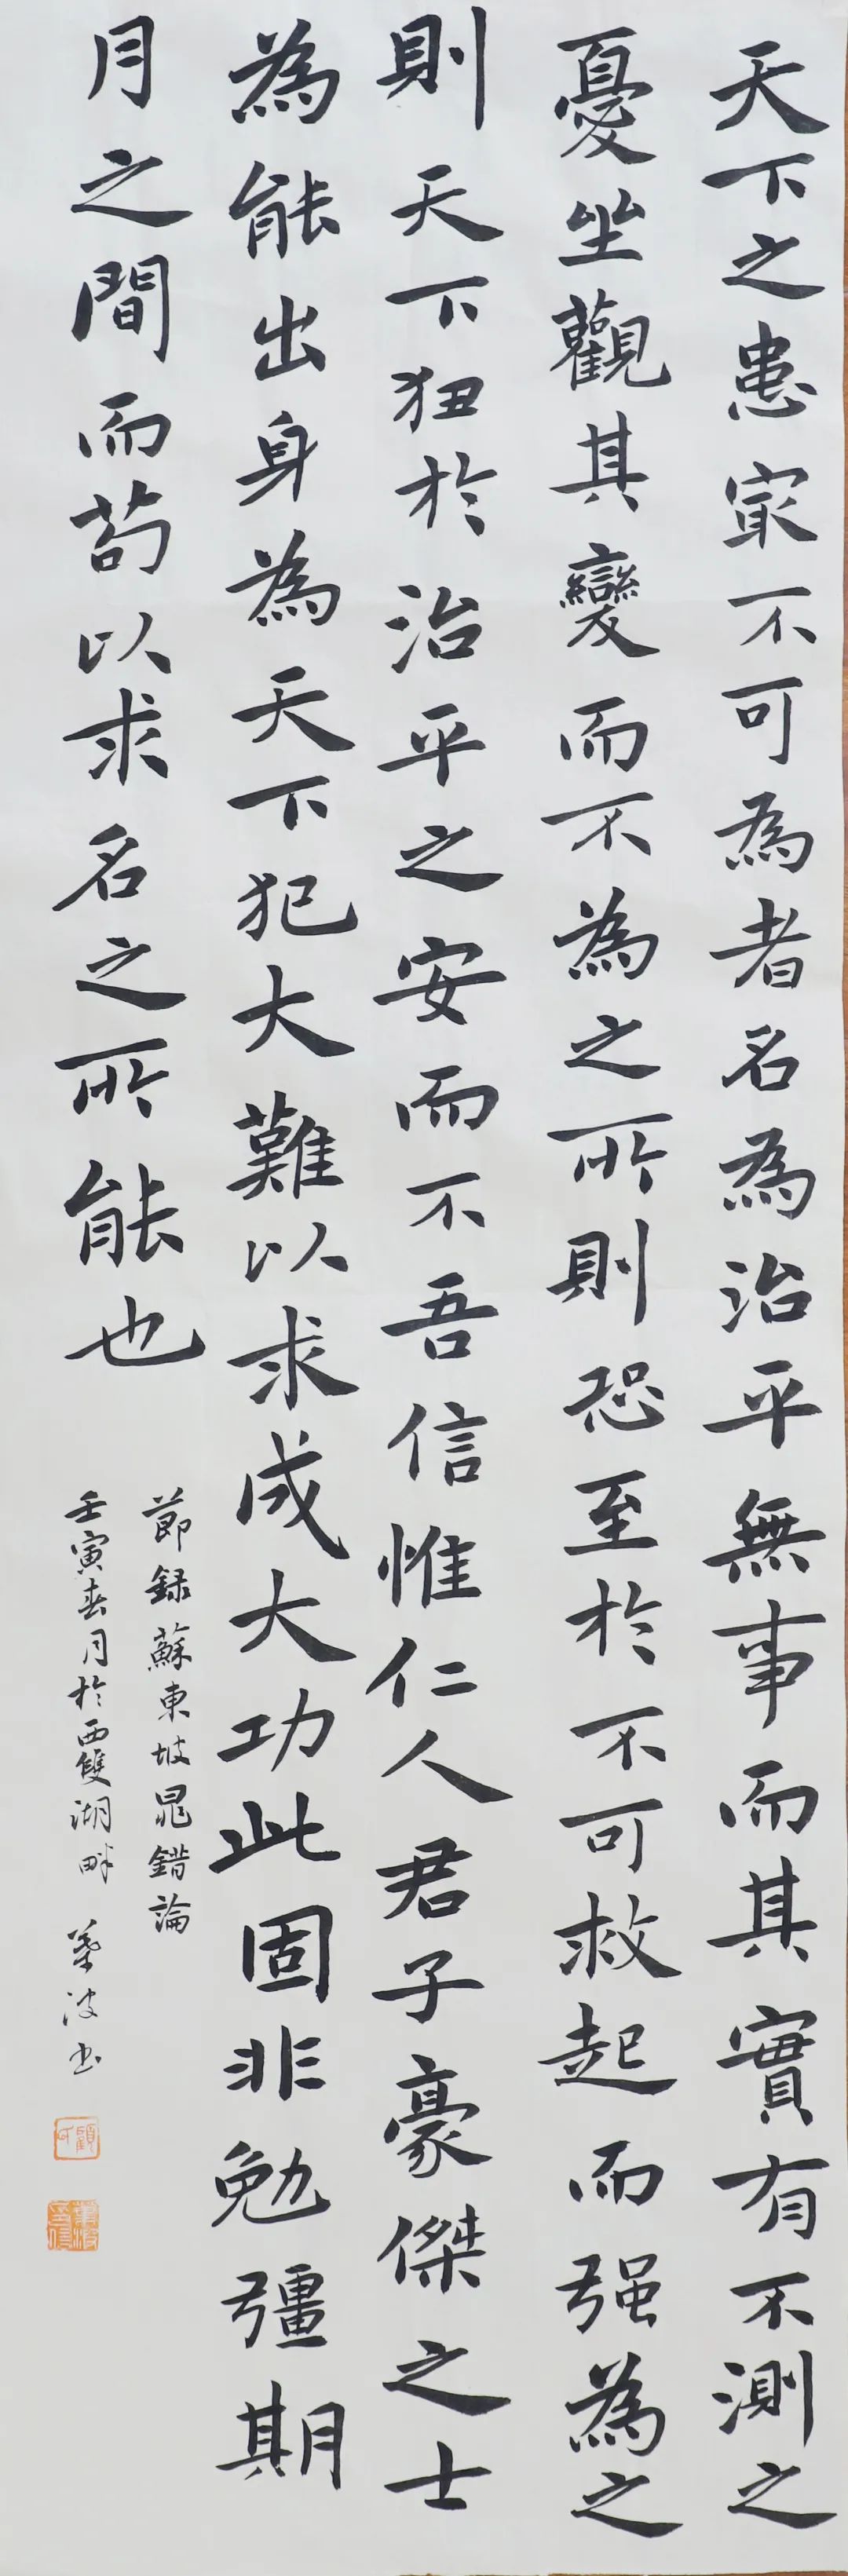 天下之患冣不可為者名為治平無事而其實有不測之
憂坐觀其變而不為之所則恐至於不可救起而强為之
則天下狃於治平之安而不吾信惟仁人君子豪傑之士
為能出身為天下犯大難以求成大功此固非勉彊期
月之間而苟以求名之所能也
節録蘇東坡鼂錯論
壬寅春月於西雙湖畔 葉波书